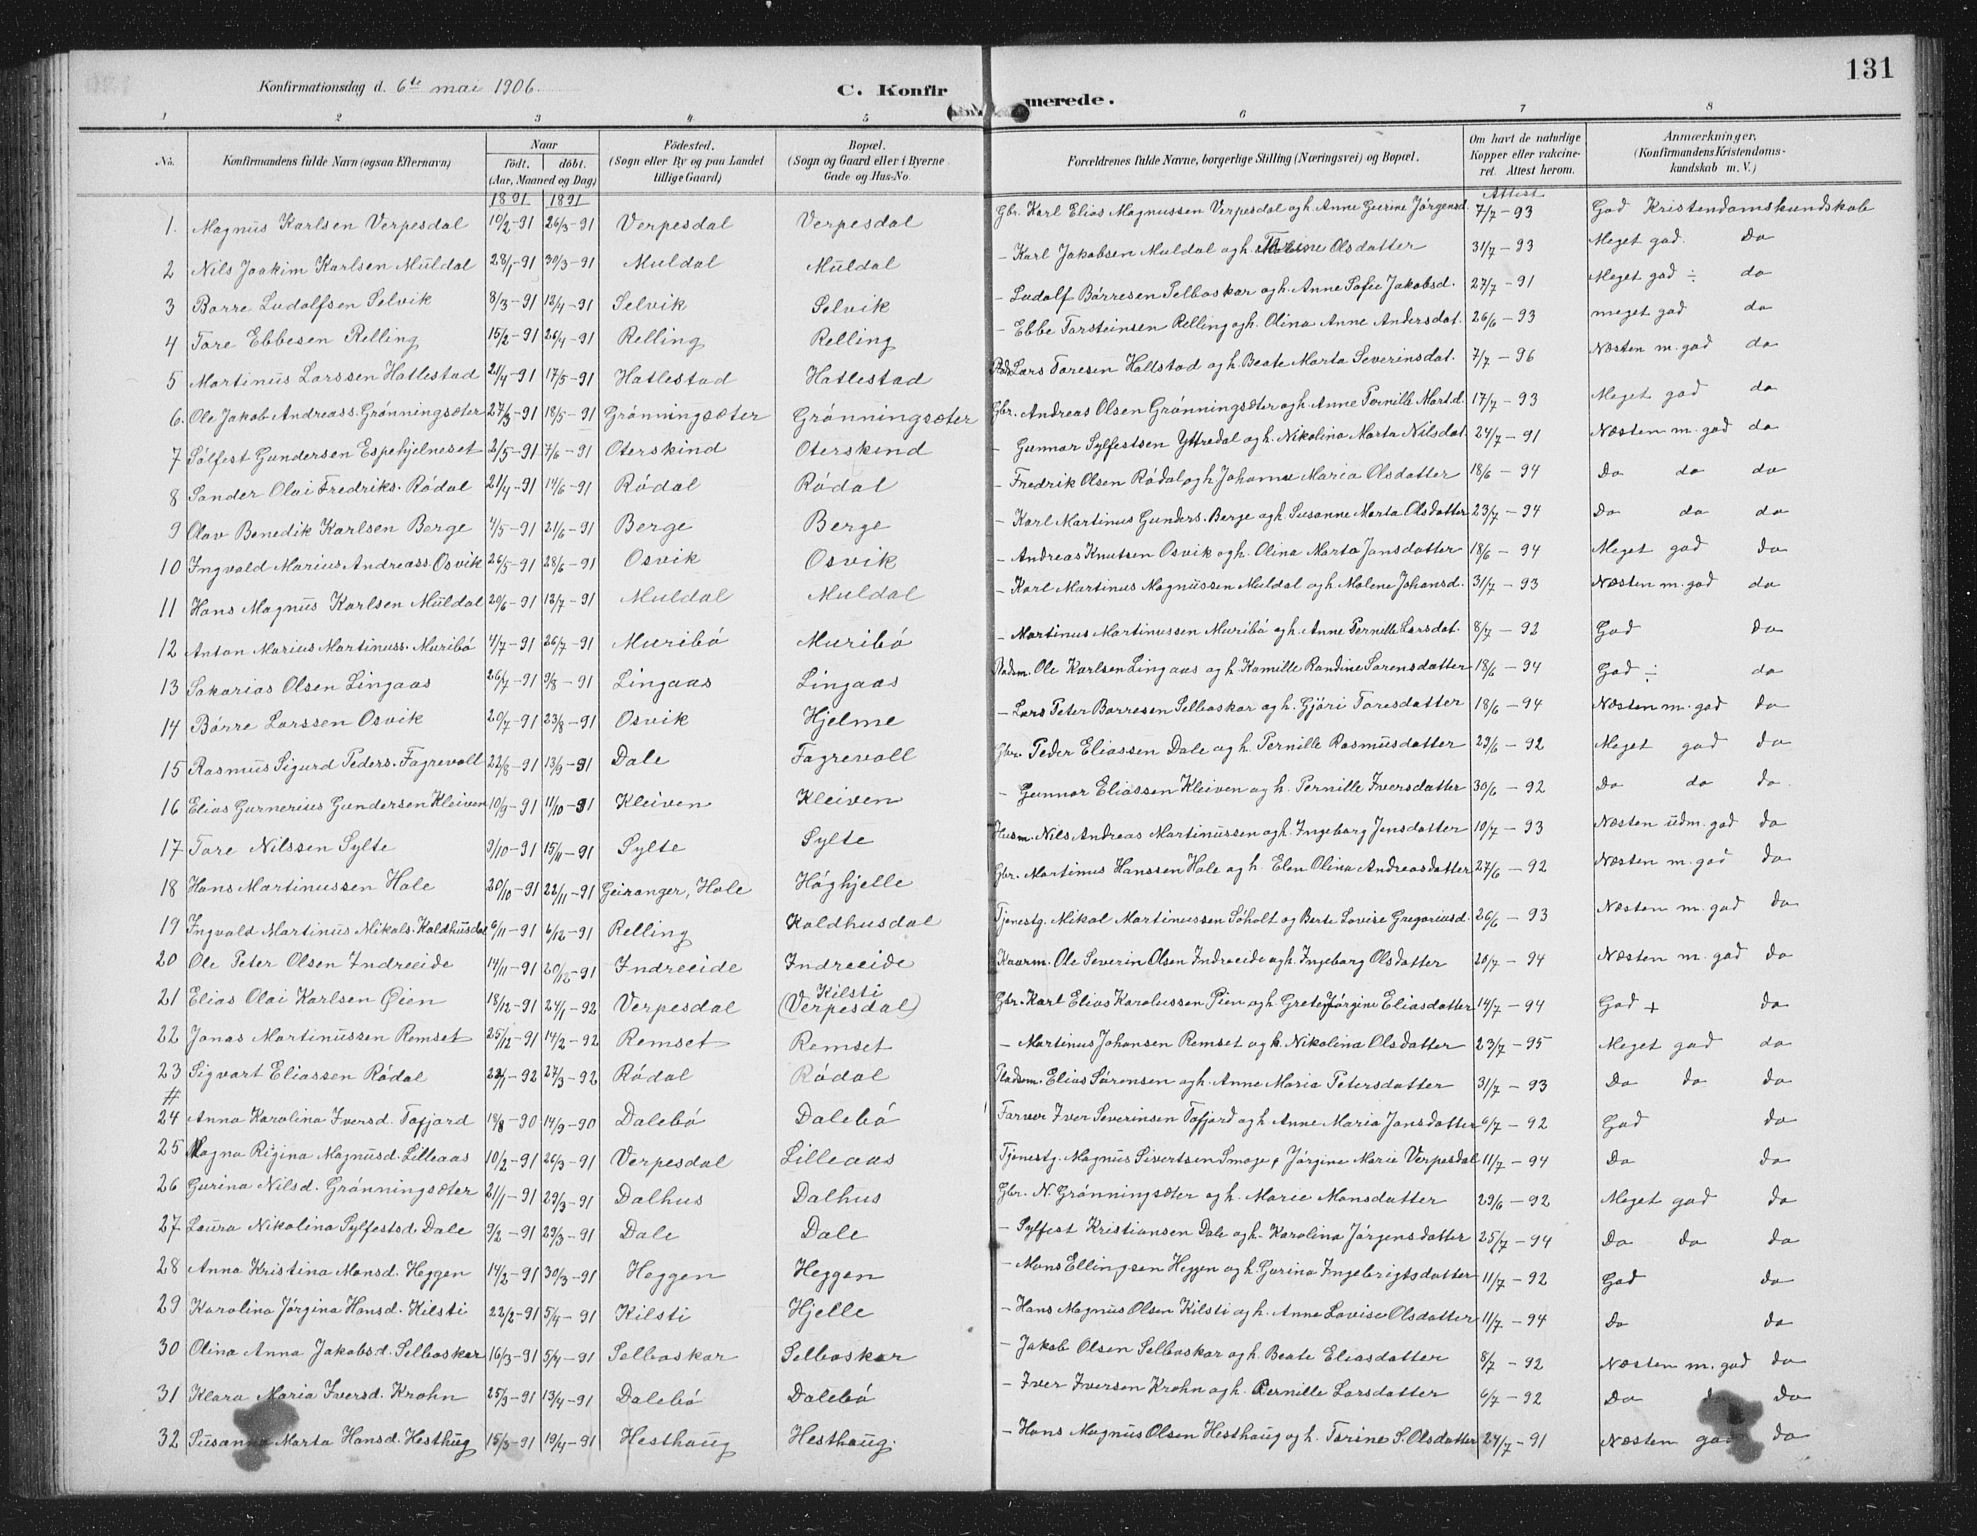 131
Konfirmationsdag d. 6te mai 1906.
C. Konfirmerede.
1 2 3 4 5 6 7 8
No. Konfirmandens fulde Navn (ogsaa Efternavn) Naar født. døbt. (Aar, Maaned og Dag) Fødested. (Sogn eller By og paa Landet tillige Gaard) Bopæl. (Sogn og Gaard eller i Byerne Gade og Hus-No. Forældrenes fulde Navne, borgerlige Stilling (Næringsvei) og Bopæl. Om havt de naturlige Kopper eller vakcineret. Attest herom. Anmærkninger. (Konfirmandens Kristendomskundskab m. V.)
1891 1891 Attest
1. Magnus Karlsen Verpesdal 10/2-91 26/3-91 Verpesdal Verpesdal Gbr. Karl Elias Magnussen Verpesdal og h. Anne Gurine Jørgensd. 7/7-93 God Kristendomskundskab
2 Nils Joakim Karlsen Muldal 28/1-91 30/3-91 Muldal Muldal - Karl Jakobsen Muldal og h. Olsdatter 31/7-93 Meget god. Do
3 Børre Ludolfsen Selvik 8/3-91 12/4-91 Selvik Selvik - Ludolf Børresen Selboskar og h. Anne Sofie Jakobsd. 27/7-91 Meget god ÷ do
4 Tore Ebbesen Relling 15/2-91 26/4-91 Relling Relling - Ebbe Torsteinsen Relling og h. Olina Anne Andersdat. 26/6-93 meget god do
5 Martinus Larssen Hatlestad 21/4-91 17/5-91 Hatlestad Hatlestad Lars Toresen Hallstad og h. Beate Marta Severinsdat. 7/7-96 Næsten m. god do
6. Ole Jakob Andreass. Grønningsæter 27/3-91 18/5-91 Grønningsæter Grønningsæter Gbr. Andreas Olsen Grønningsæter og h. Anne Pernille Mort.d. 17/7-93 Meget god do
7 Sølfest Gundersen Espehjelneset 2/5-91 7/6-91 Oterskind Oterskind - Gunnar Sylfestsen Yttredal og h. Nikolina Marta Nilsdat. 24/7-91 Næsten m. god do
8 Sander Olai Fredriks. Rødal 21/4-91 14/6-91 Rødal Rødal - Fredrik Olsen Rødal og h. Johanne Maria Olsdatter 18/6-94 Do do do
9 Olav Benedik Karlsen Berge 4/5-91 21/6-91 Berge Berge - Karl Martinus Gunders. Berge og h. Susanne Marta Olsdatter 23/7-94 Do do do
10 Ingvald Marius Andreass. Osvik 26/5-91 28/6-91 Osvik Osvik - Andreas Knutsen Osvik og h. Olina Marta Jonsdatter 18/6-94 Meget god do
11 Hans Magnus Karlsen Muldal 20/6-91 12/7-91 Muldal Muldal - Karl Martinus Magnussen Muldal og h. Malene Johansd. 31/7-93 Næsten m. god do
12 Anton Marius Martinuss. Muribø 4/7-91 26/7-91 Muribø Muribø - Martinus Martinussen Muribø og h. Anne Pernille Larsdat. 8/7-92 God do
13 Sakarias Olsen Lingaas 26/7-91 9/8-91 Lingaas Lingaas Pladsm. Ole Karlsen Lingaas og h. Kamille Randine Sørensdatter 18/6-94 God ÷ do
14 Børre Larssen Osvik 20/7-91 23/8-91 Osvik Hjelme - Lars Peter Børresen Selboskar og h. Gjøri Toresdatter 18/6-94 Næsten m. god do
15 Rasmus Sigurd Peders. Fagrevoll 22/8-91 13/9-91 Dale Fagrevoll Gbr. Peder Eliassen Dale og h. Pernille Rasmusdatter 29/6-92 Meget god do
16 Elias Gurnerius Gundersen Kleiven 10/9-91 11/10-91 Kleiven Kleiven - Gunnar Eliassen Kleiven og h. Pernille Iversdatter 30/6-92 Do do do
17 Tore Nilssen Sylte 9/10-91 15/11-91 Sylte Sylte Husm. Nils Andreas Martinussen og h. Ingeborg Jensdatter 10/7-93 Næsten udm. god do
18 Hans Martinussen Hole 20/10-91 22/11-91 Geiranger, Hole Høghjelle Gbr. Martinus Hanssen Hole og h. Elen Olina Andreasdatter 27/6-92 Næsten m. god do
19 Ingvald Martinus Mikals. Koldhusdal 6/11-91 6/12-91 Relling Koldhusdal Tjenestg. Mikal Martinussen Søholt og Berte Lovise Gregoriusd. 26/6-93 Næsten m. god do
20 Ole Peter Olsen Indreeide 14/11-91 20/12-91 Indreeide Indreeide Kaarm. Ole Severin Olsen Indreeide og h. Ingeborg Olsdatter 20/7-94 Næsten m. god do
21 Elias Olai Karlsen Øien 18/12-91 24/1-92 Verpesdal Kilsti (Verpesdal) Gbr. Karl Elias Karolussen Øien og h. Grete Jørgine Eliasdatter 14/7-94 God + do
22 Jonas Martinussen Remset 25/12-91 14/2-92 Remset Remset - Martinus Johansen Remset og h. Nikolina Olsdatter 23/7-95 Meget god do
23 Sigvart Eliassen Rødal 22/1-92 27/3-92 Rødal Rødal Pladsm. Elias Sørensen og h. Anne Maria Petersdatter 31/7-93 Do do do
#
24 Anna Karolina Iversd. Tafjord 18/8-90 14/9-90 Dalebø Dalebø Farver Iver Severinsen Tafjord og h. Anne Maria Jonsdatter 6/7-92 God do
25 Magna Rigina Magnusd. Lilleaas 10/2-91 26/3-91 Verpesdal Lilleaas Tjenestg. Magnus Sivertsen Smoge, Jørgine Marie Verpesdal 11/7-94 Do do
26 Gurina Nilsd. Grønningsæter 21/1-91 29/3-91 Dalhus Dalhus Gbr. N. Grønningsæter og h. Marie Monsdatter 29/6-92 Meget god do
27 Laura Nikolina Sylfestsd. Dale 9/2-91 29/3-91 Dale Dale - Sylfest Kristiansen Dale og h. Karolina Jørgensdatter 25/7-94 Do do do
28 Anna Kristina Monsd. Heggen 14/2-91 30/3-91 Heggen Heggen - Mons Ellingsen Heggen og h. Gurina Ingebrigtsdatter 11/7-92 God do
29 Karolina Jørgina Hansd. Kilsti 22/2-91 5/4-91 Kilsti Hjelle - Hans Magnus Olsen Kilsti og h. Anne Lovise Olsdatter 11/7-94 Do do
30 Olina Anna Jakobsd. Selboskar 16/3-91 5/4-91 Selboskar Selboskar - Jakob Olsen Selboskar og h. Beate Eliasdatter 8/7-92 Næsten m. god do
31 Klara Maria Iversd. Krohn 25/3-91 13/4-91 Dalebø Dalebø - Iver Iversen Krohn og h. Pernille Larsdatter 6/7-92 Do do
32 Susanna Marta Hansd. Hesthug 15/3-91 19/4-91 Hesthaug Hesthaug. - Hans Magnus Olsen Hesthaug og h. Tarine S. Olsdatter 24/7-91 Næsten god do